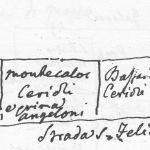 montecalos
Cerioli
e prima
angeloni
Bassan
Cerioli
Strada S. Felic